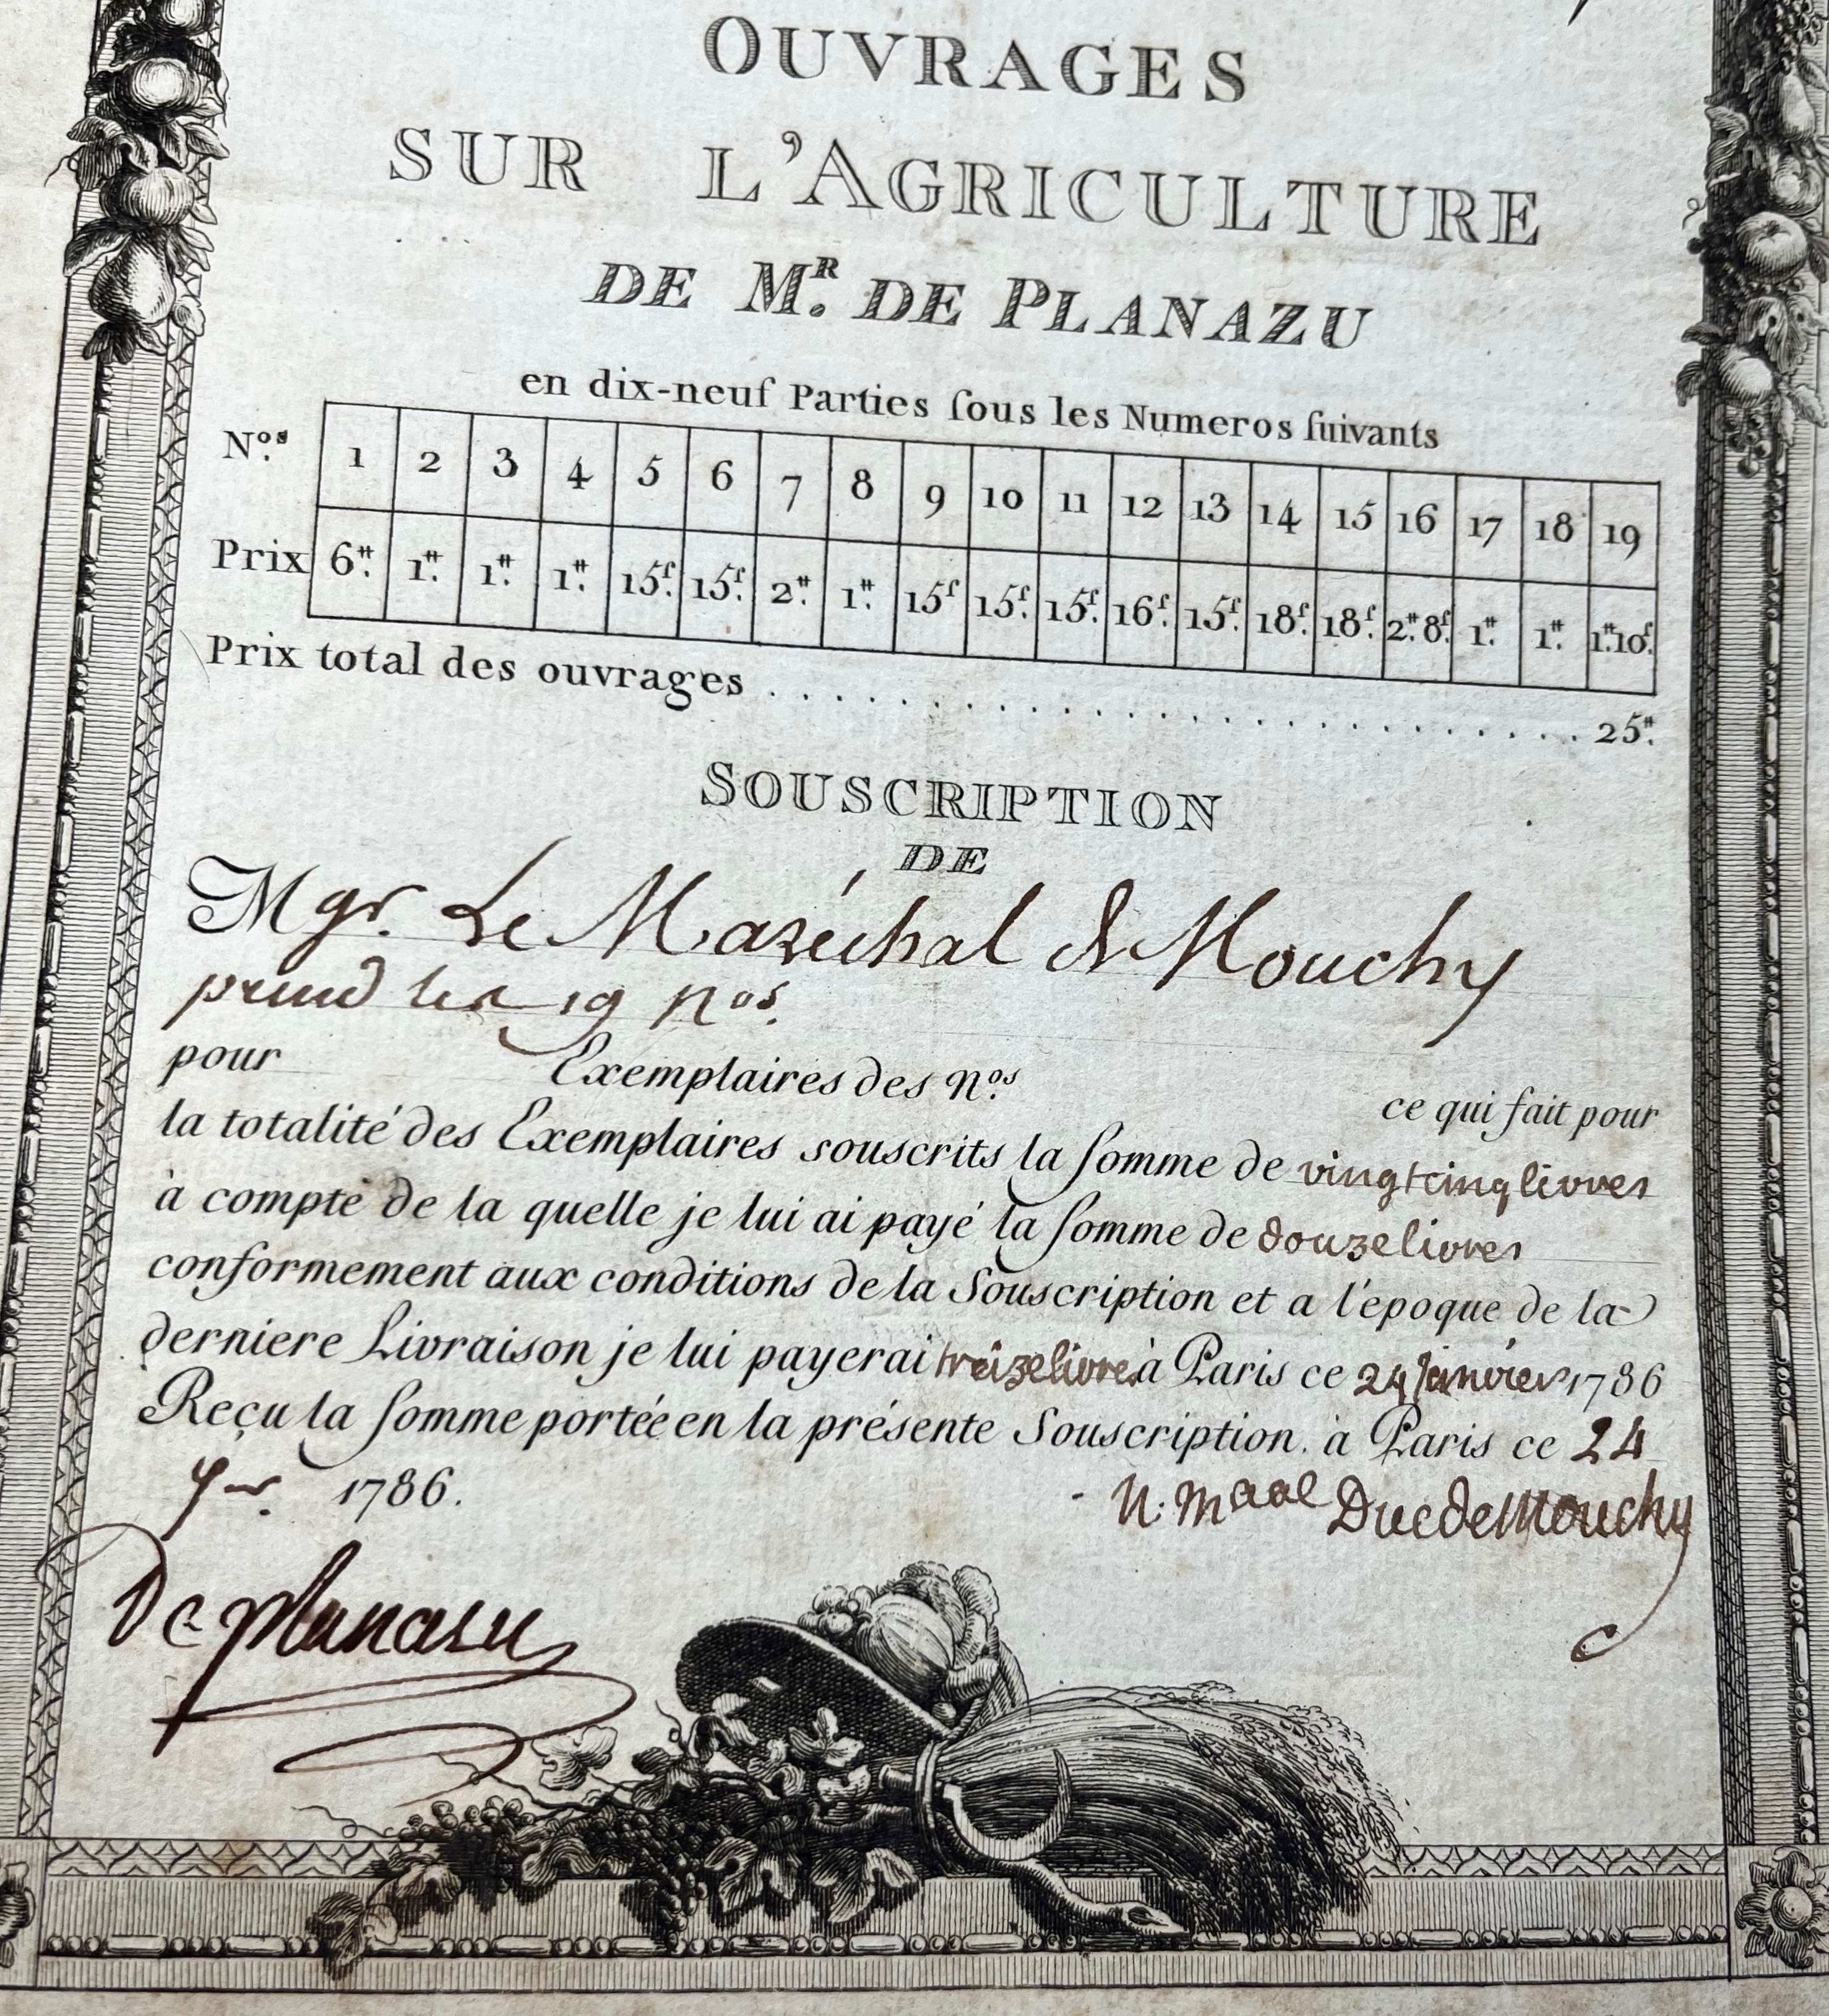 OUVRAGES
SUR L'AGRICULTURE
DE MR. DE PLANAZU
en dix-neuf Parties ſous les Numeros ſuivants
Nos. 1 2 3 4 5 6 7 8 9 10 11 12 13 14 15 16 17 18 19
Prix 6₶. 1₶. 1₶. 1₶. 15ſ. 15ſ. 2₶. 1₶. 15ſ 15ſ. 15ſ. 16ſ. 15ſ. 18ſ. 18ſ. 2₶.8ſ. 1₶. 1₶. 1₶.10ſ.
Prix total des ouvrages . . . . . . . . . . . . . . . . . . . . . . . . . 25₶.
SOUSCRIPTION
DE
Mgr. Le Maréchal de Mouchy
prend les 19 nos.
pour Exemplaires des nos. ce qui fait pour
la totalité des Exemplaires souscrits la ſomme de vingt cinq livres
à compte de la quelle je lui ai payé la ſomme de douze livres
conformement aux conditions de la Souscription et a l'epoque de la
derniere Livraison je lui payerai treize livres à Paris ce 24 janvier 1786
Reçu la ſomme portée en la présente Souscription. à Paris ce 24
1786.
N. maal Duc de Mouchy
De planazu